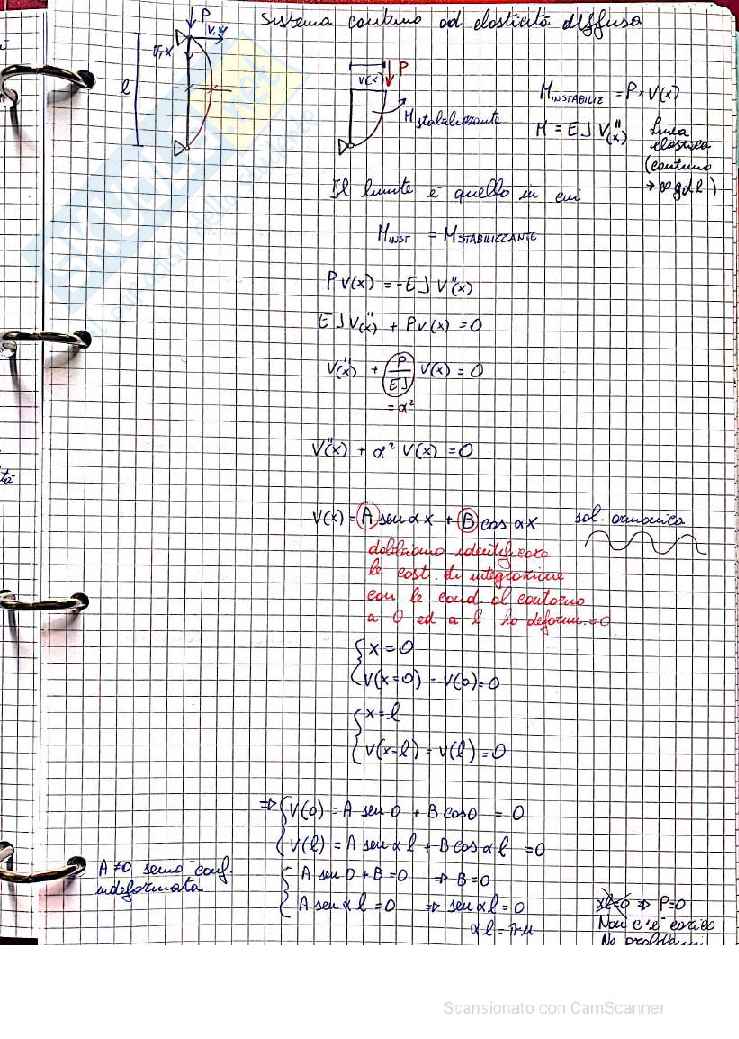 Sistema continuo ad elasticità diffusa
P
v,y
0,x
l
P
v(x)
M stabilizzante
M INSTABILIZ = P · V(x)
M = EJ V''(x) linea
elastica
(continuo
→ ∞ gdl)
Il limite è quello in cui
M INST = M STABILIZZANTE
P V(x) = -EJ V''(x)
EJ V''(x) + P V(x) = 0
V''(x) + P/EJ V(x) = 0
= α²
V''(x) + α² V(x) = 0
V(x) = A sen αx + B cos αx sol. armonica
dobbiamo identificare
le cost. di integrazione
con le cond al contorno
a 0 ed a l ho deform.=0
x = 0
V(x=0) = V(0) = 0
x = l
V(x=l) = V(l) = 0
⇒ V(0) = A sen 0 + B cos 0 = 0
V(l) = A sen α l + B cos α l = 0
A ≠ 0 senò conf.
indeformata
A sen 0 + B = 0 ⇒ B = 0
A sen α l = 0 ⇒ sen α l = 0
α l = π·n
αl=0 ⇒ P=0
Non c'è carico
No problemi
Scansionato con CamScanner